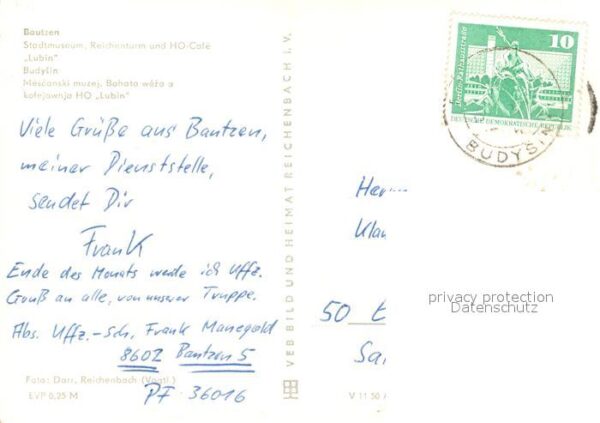 Bautzen
Stadtmuseum, Reichenturm und HO-Café
„Lubin"
Budyšin
Měšćanski muzej, Bohata wěža a
kofejownja HO „Lubin"
Viele Grüße aus Bautzen,
meiner Dienststelle,
sendet Dir
Frank
Ende des Monats werde ich Uffz.
Gruß an alle, von unserer Truppe.
Abs. Uffz.-Sch. Frank Manegold
8602 Bautzen 5
PF 36016
Foto: Darr, Reichenbach (Vogtl.)
EVP 0,25 M
VEB BILD UND HEIMAT REICHENBACH i. V.
V 11 50
10
Berlin, Rathausstraße
DEUTSCHE DEMOKRATISCHE REPUBLIK
BUDYŠIN
Her
Klau
50
privacy protection
Datenschutz